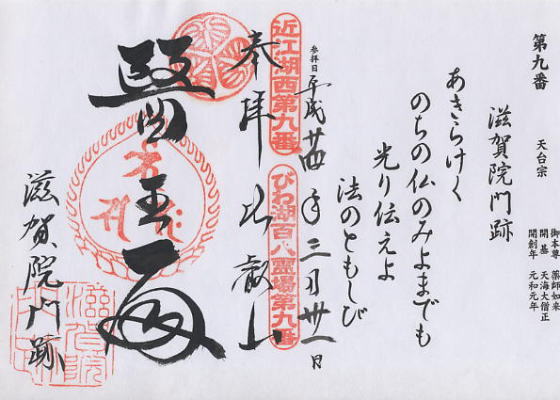 第九番 天台宗
御本尊 薬師如来
開基 天海大僧正
開創年 元和元年
滋賀院門跡
あきらけく
のちの仏のみよまでも
光り伝えよ
法のともしび
参拝日 平成廿四年三月廿一日
近江湖西第九番
びわ湖百八霊場第九番
奉拝 比叡山
醫王殿
滋賀院門跡